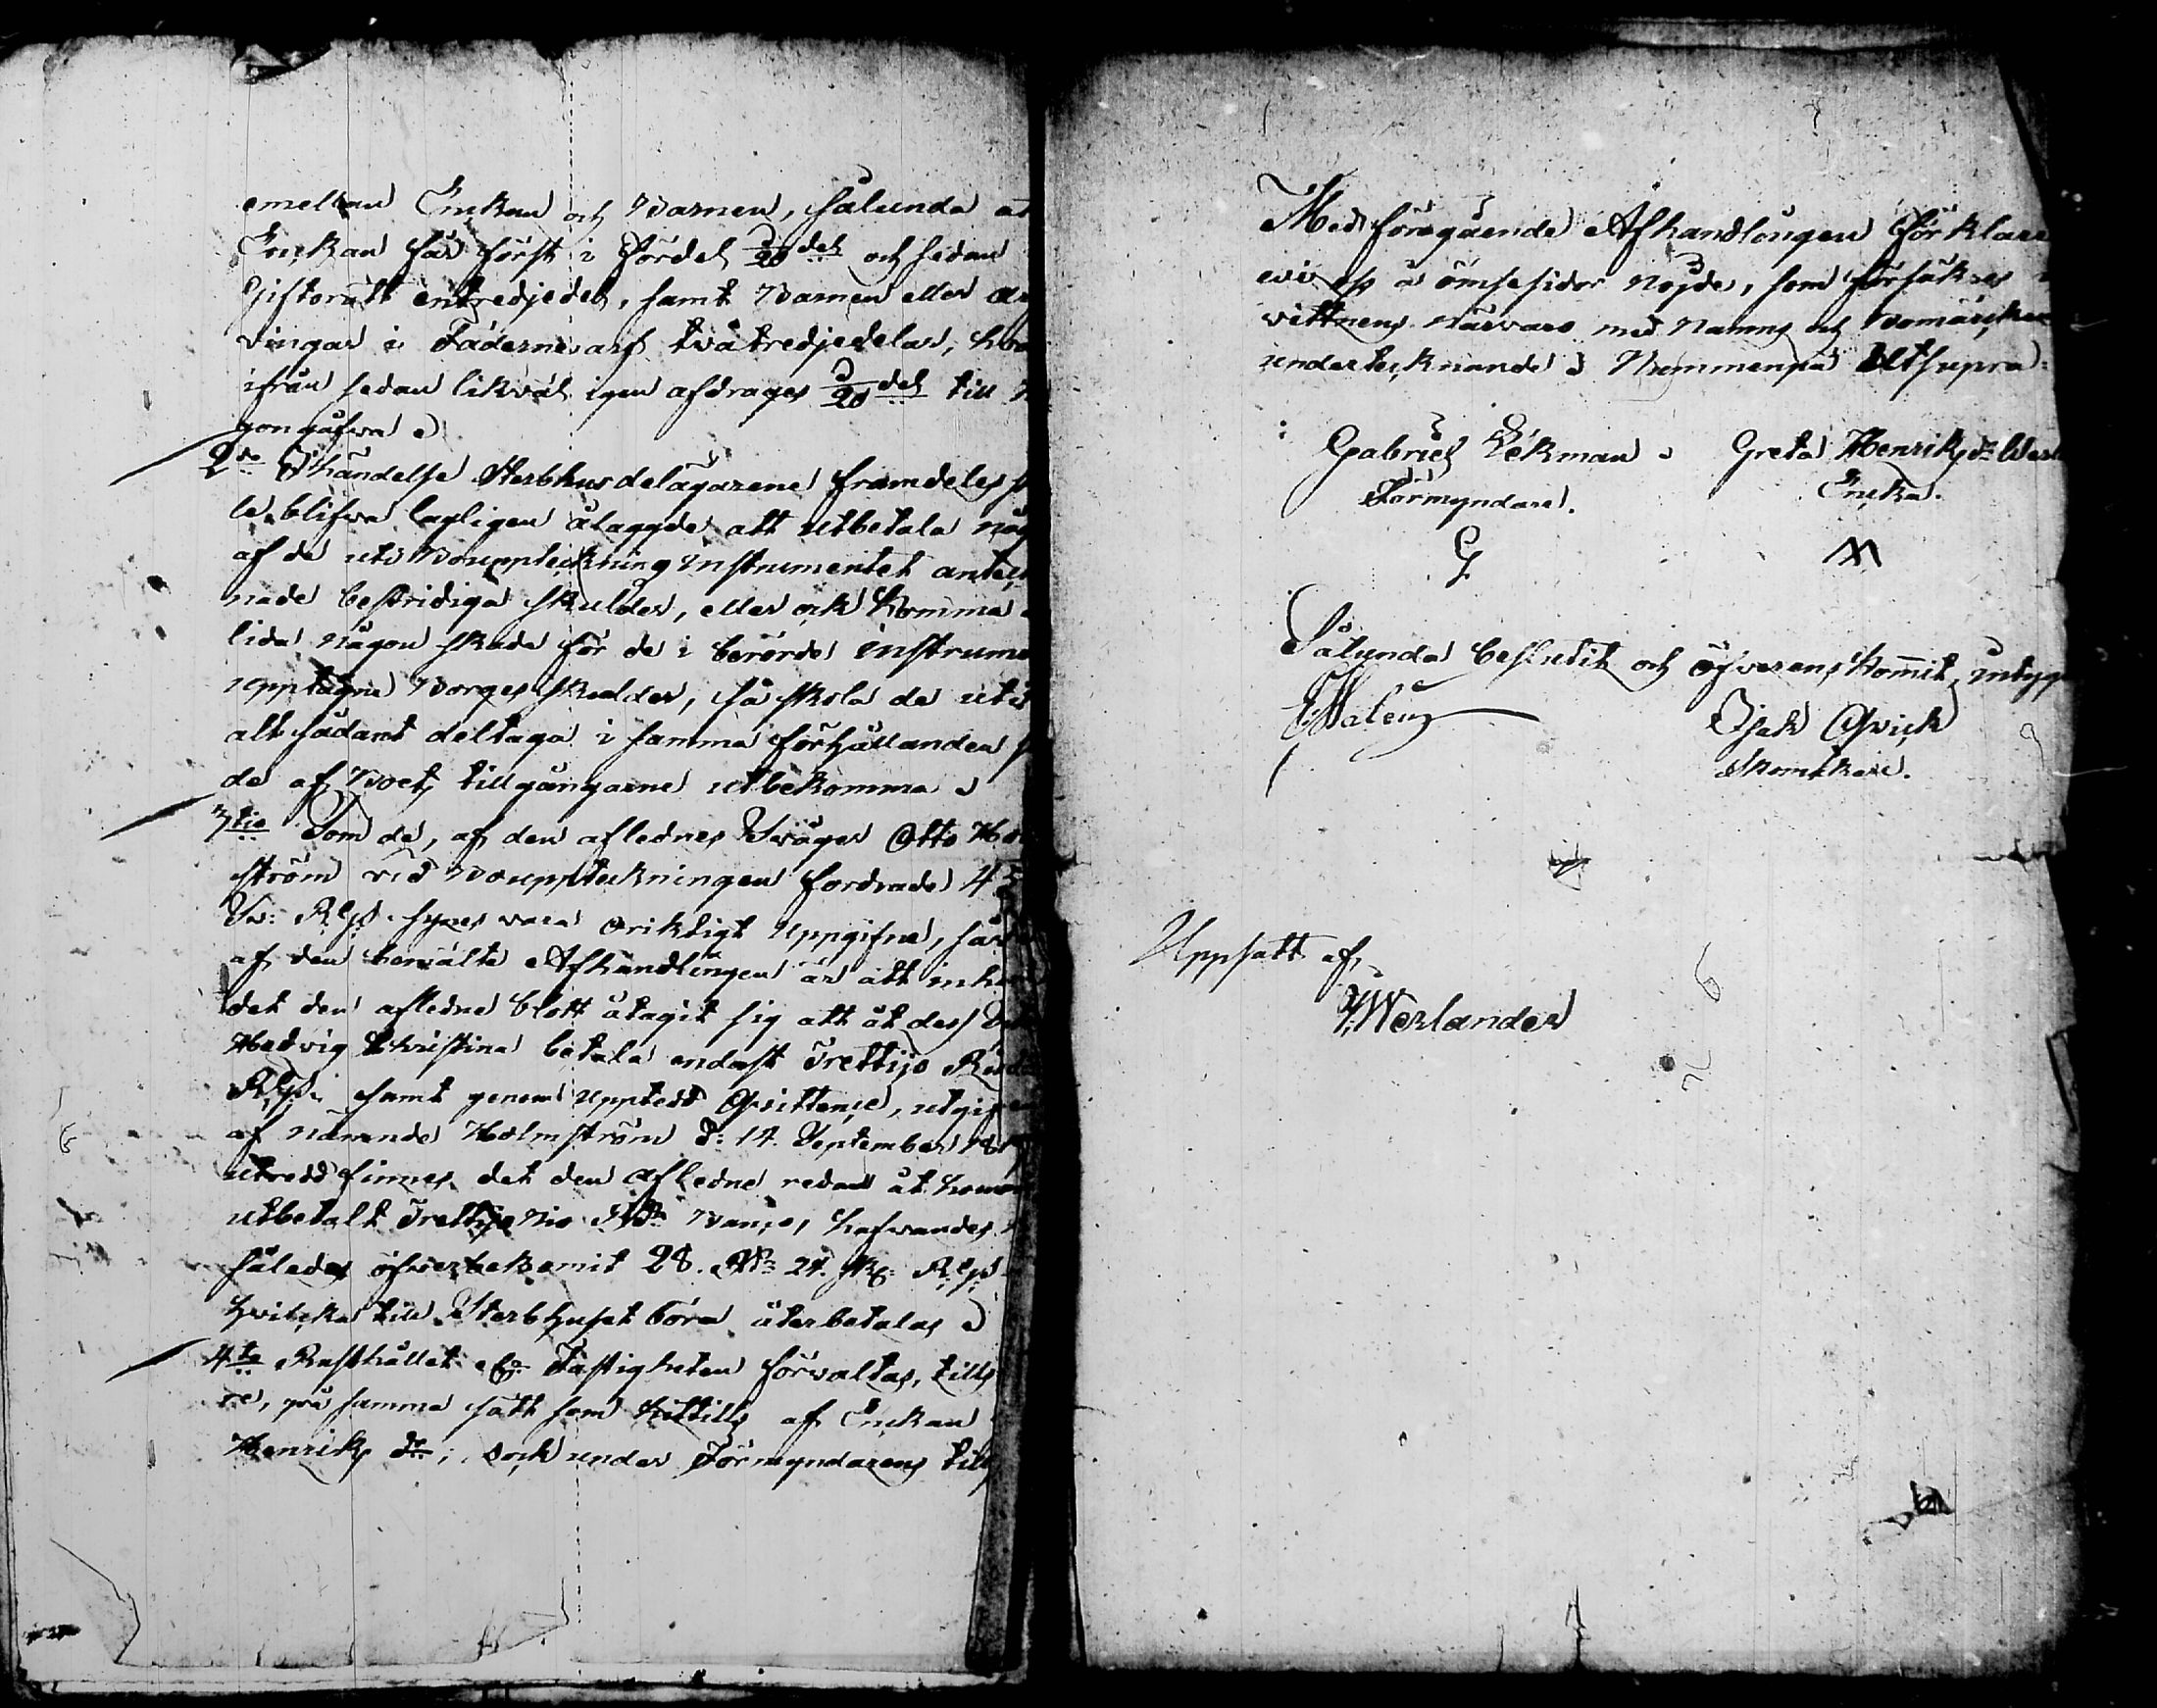 emellan Enckan och Barnen, sålunda at
Enckan får först i fördel 1/20 del och sedan
Giftorätt entredjedel, samt Barnen eller Ar
vingar i Fädernearf tvåtredjedelar, hva
ifrån sedan likväl igen afdrages 1/20 del till M
gongåfwa
2do I händelse Sterbhusdelägarene framdeles s
le blifwa lagligen ålaggde att utbetala någ
af de uti Bouppteckning instrumentet anteck
nade bestridiga skulder, eller ock komma
lida någon skada för de i berörde instrume
upptagne Borges skulder, så skola de uti
alt sådant deltaga i samma förhållanden s
de af Boets tillgångarne utbekomma
3tio Som de, af den aflednes Swåger Otto Hol
ström vid Bouppteckningen fordrade 45
Sw: Rgs. synes vara oriktigt uppgifne, här
af den Afhandlingen är att inh
det den afledne blott åtagit sig att åt dess
Hedvig Christina betala endast Trettijo Riksd
Rgs: samt genom upptedd Qvittence, utgifwe
af nämnde Holmström d: 14. September 18
utredt finnes det den afledne redan åt honom
utbetalt Trettijo Nio Rdr Banco, hafwandes
således öfwerbekomit 28. Rdr 24. sk: Rgs.
hvilcka till Sterbhuset böra återbetalas
4to Rusthållet och Fastigheten förvaltas, tills
re, på samma sätt som hittills af Enckan
Henriks dr; dock under Förmyndarens till
Med föregående Afhandlingen förklare
wi oss å ömsesidor nöjde, som försäkres
vittnens närvaro med Namns och Bomärcken
undertecknande Nummenpä Utsupra.
Gabriel Eekman Greta Henriks dr Wes
Förmyndare. Encka.
G M
Sålunda beslutit och öfwerens komit, intyga
Isak Qvick
Skomakare.
Uppsatt af,
Werlander